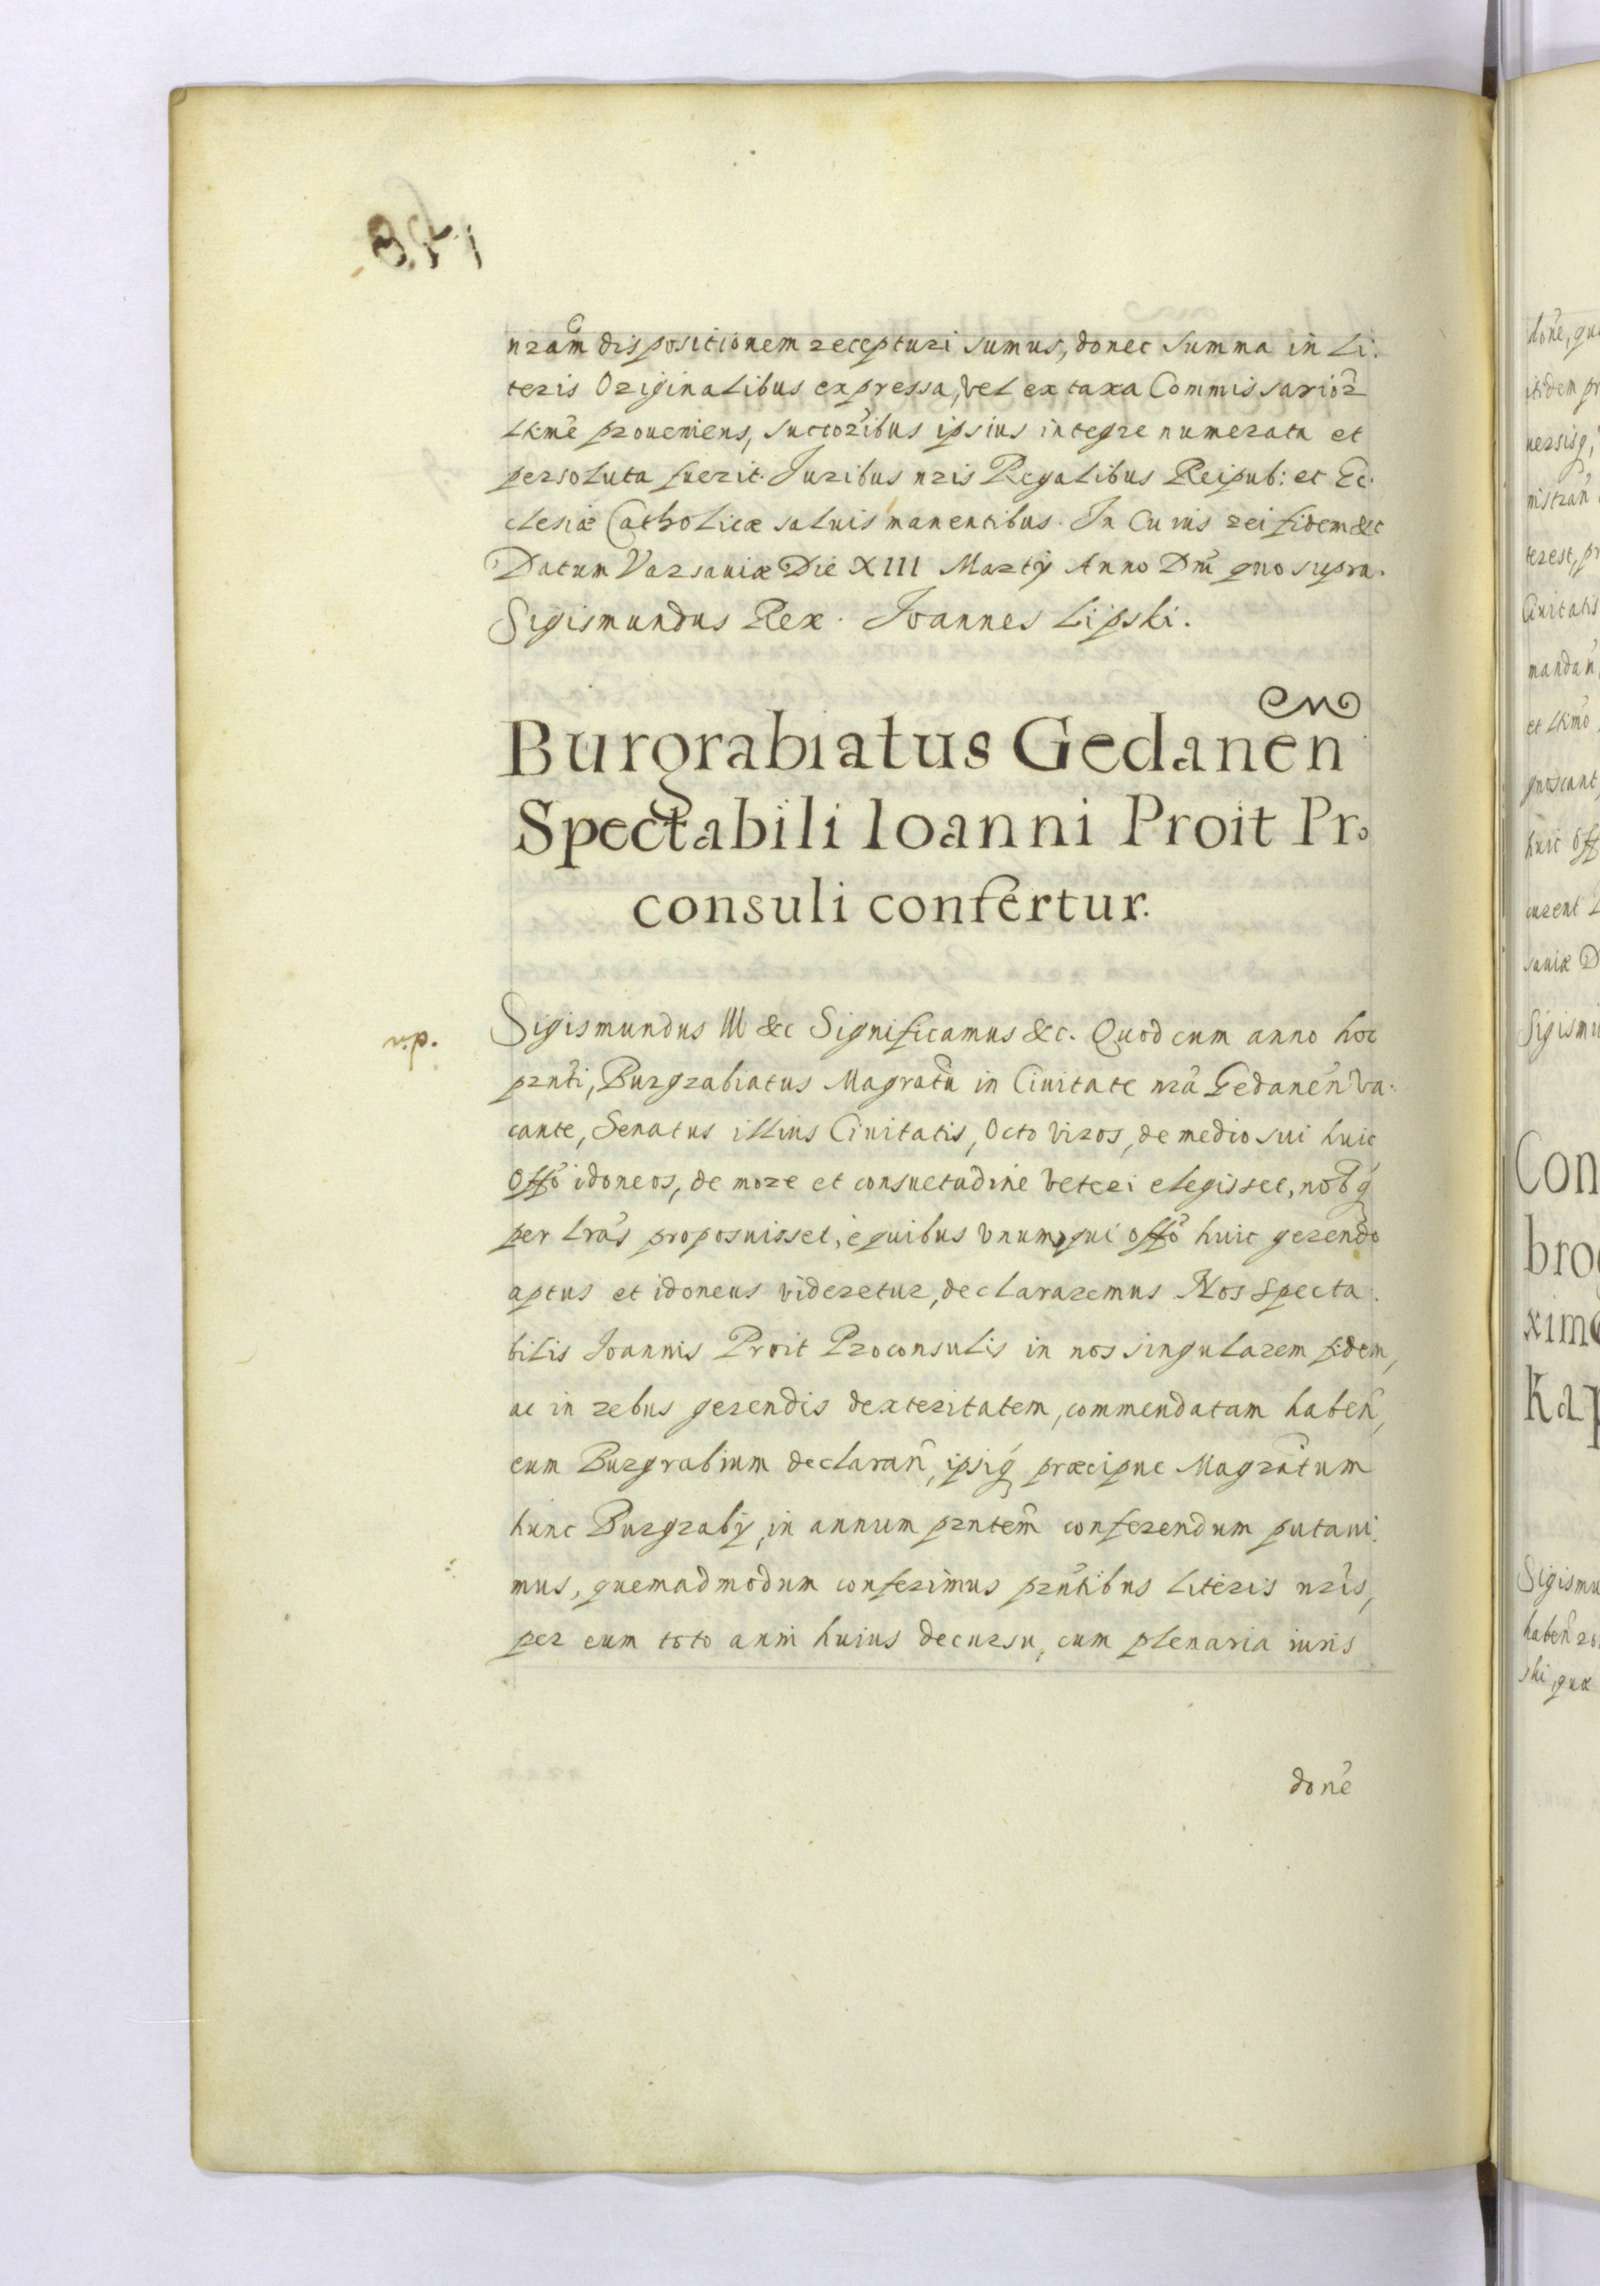 nrãm dispositionem recepturi sumus, donec summa in Li:
teris Originalibus expressa, vel ex taxa Commissariór
Lkme proueniens, succoribus ipsius integre numerata et
persoluta fuerit. Juribus nris Regalibus Reipub: et Ec:
clesiæ Catholicæ saluis manentibus. In Cuius rei fidem &c
Datum Varsauiæ Die XIII Martÿ Anno Dnĩ quo supra.
Sigismundus Rex. Joannes Lipski.
Burgrabiatus Gedanen̄
Spectabili Ioanni Proit Pro
consuli confertur.
n.p.
Sigismundus III &c Significamus &c. Quod cum anno hoc
prnt̃i, Burgrabiatus Magratũ in Ciuitate nrã Gedanen̄ va:
cante, Senatus illius Ciuitatis, Octo viros, de medio sui huic
Offõ idoneos, de more et consuetudine veteri elegisset, nob̃q́
per lrãs proposuisset, è quibus vnum, qui offõ huic gerendo
aptus et idoneus videretur, declararemus Nos Specta:
bilis Joannis Proit Proconsulis in nos singularem fidem,
ac in rebus gerendis dexteritatem, commendatam haben̄,
eum Burgrabium declaran̄, ipsiq́ præcipue Magrãtum
hunc Burgrabÿ, in annum prntem̃ conferendum putaui:
mus, quemadmodum conferimus prñtibus Literis nrĩs,
per eum toto anni huius decursu, cum plenaria iuris
donẽ